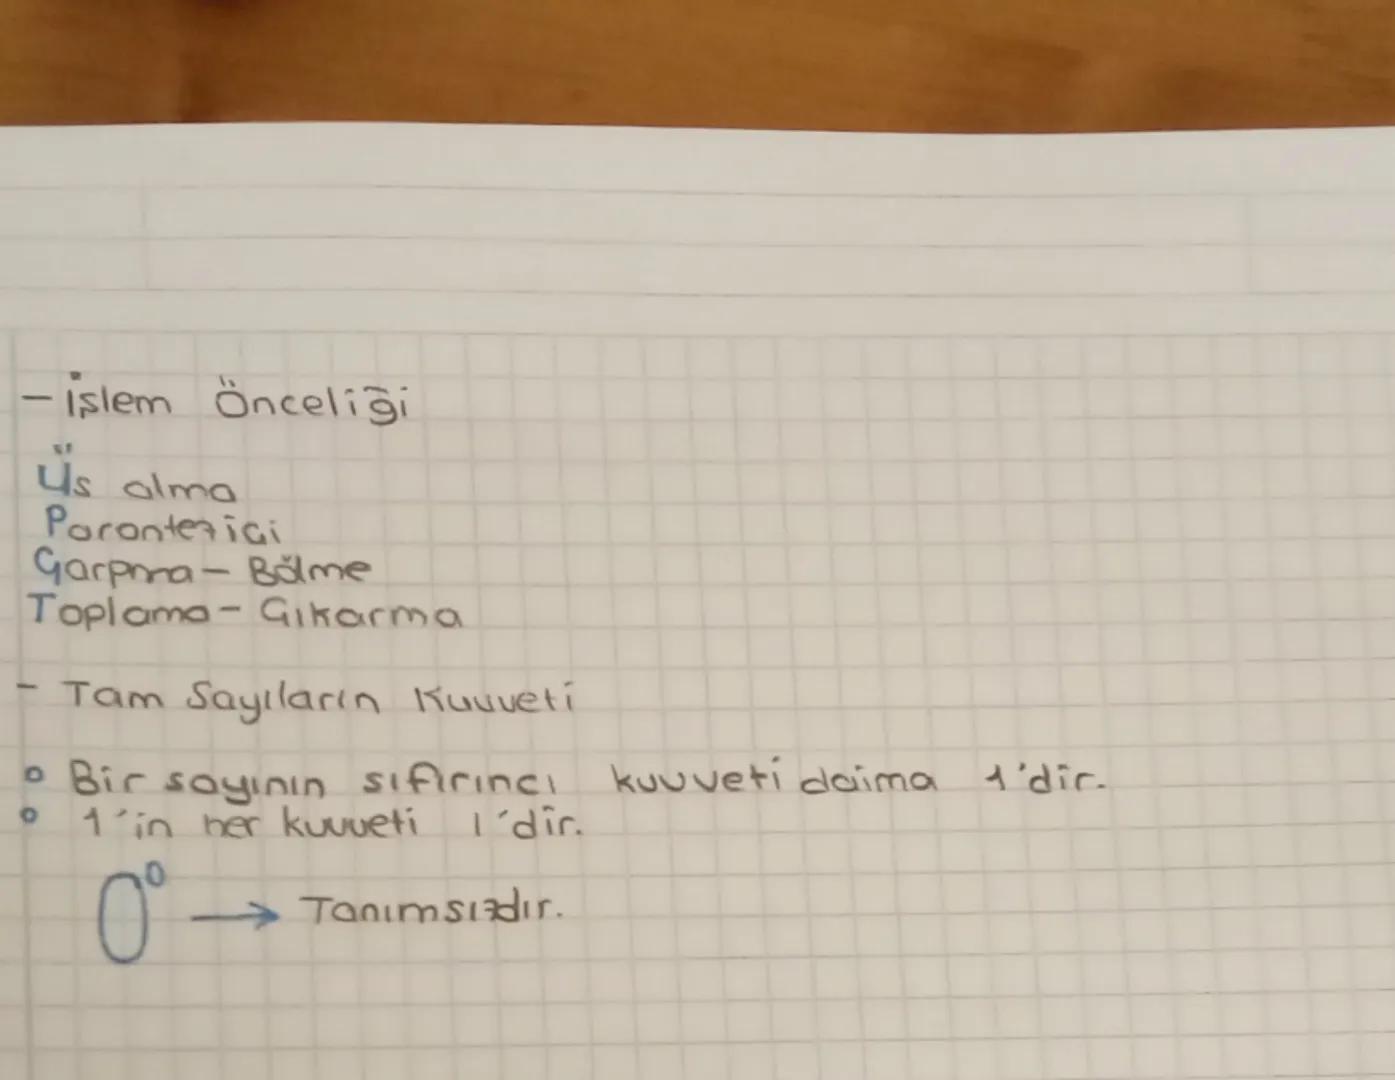 - İşlem Önceliği
Üs alma
Parantez içi
Çarpma - Bölme
Toplama - Çıkarma
- Tam Sayıların Kuvveti
o Bir sayının sıfırıncı kuvveti daima 1'dir.
o 1'in her kuvveti 1'dir.
0⁰ → Tanımsızdır.